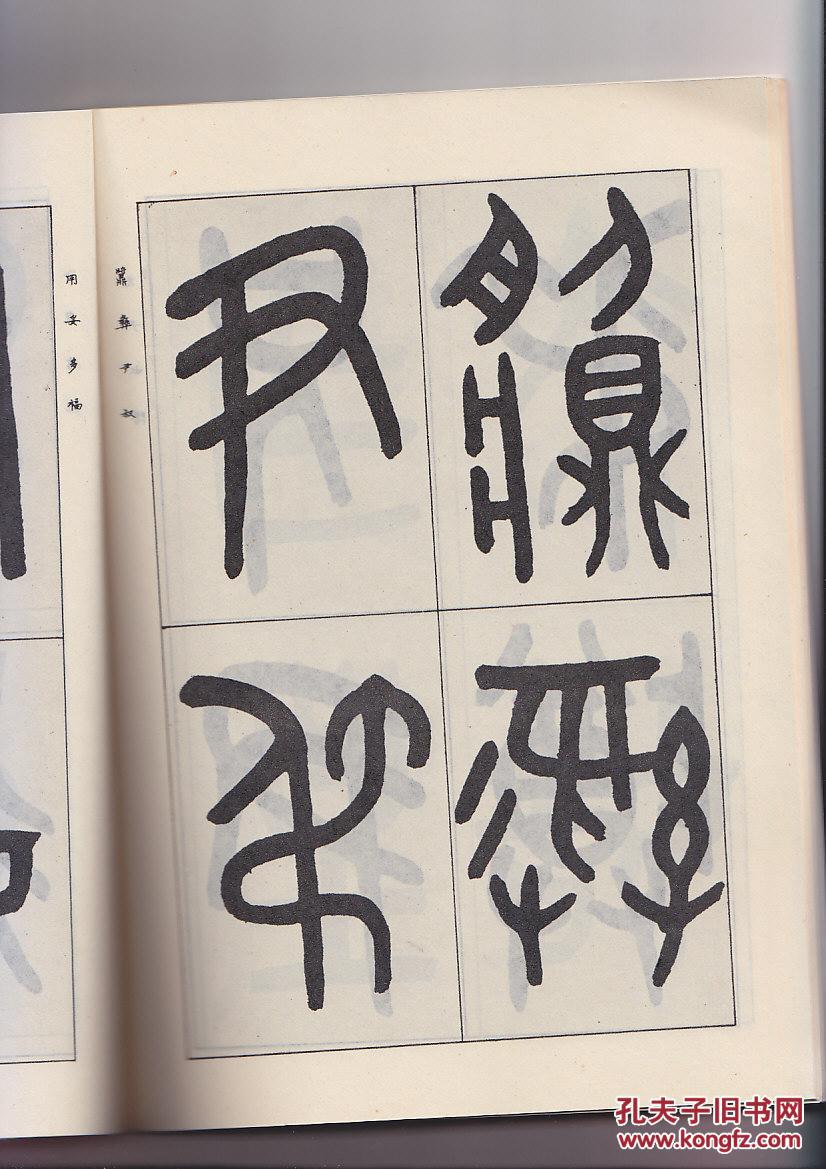 𩱧彝尹叔
用妥多福
孔夫子旧书网
www.kongfz.com